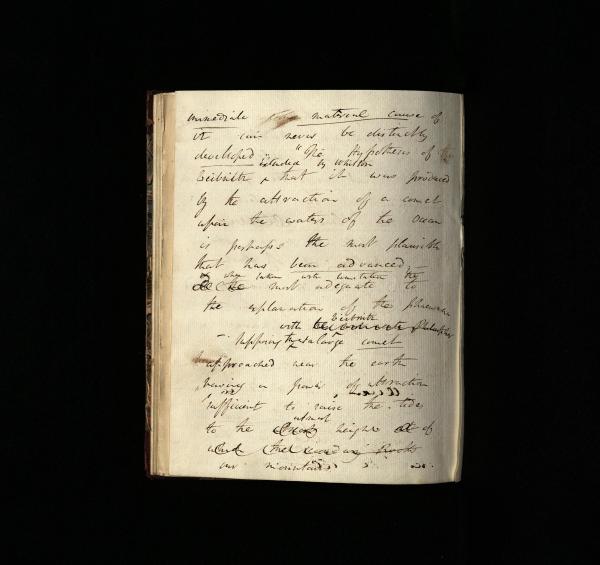 immediate material cause of
it can never be distinctly
developed "The Hypothesis of
extended by Whiston
Leibnitz that it was produced
by the attraction of a comet
upon the waters of the ocean
is perhaps the most plausible
that has been advanced
when taken with limitation the
most adequate to
the explanation of the phenomena
Leibnitz
with
– Supposing that a large comet
approached near the earth
having a power of attraction
sufficient to raise the tide
utmost
to the height of
our mountains